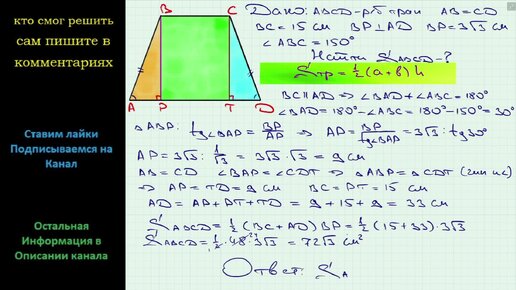 кто смог решить
сам пишите в
комментариях
Ставим лайки
Подписываемся на
Канал
Остальная
Информация в
Описании канала
B C
A P T D
Дано: ABCD - р/б трап AB = CD
BC = 15 см BP ⊥ AD BP = 3√3 см
∠ABC = 150°
Найти S ABCD - ?
S тр = 1/2 (a+b) h
BC ∥ AD ⇒ ∠BAD + ∠ABC = 180°
∠BAD = 180° - ∠ABC = 180° - 150° = 30°
△ABP: tg∠BAP = BP/AP ⇒ AP = BP/tg∠BAP = 3√3 : tg30°
AP = 3√3 : 1/√3 = 3√3 · √3 = 9 см
AB = CD ∠BAP = ∠CDT ⇒ △ABP = △CDT
⇒ AP = TD = 9 см BC = PT = 15 см
AD = AP + PT + TD = 9 + 15 + 9 = 33 см
S ABCD = 1/2 (BC + AD) BP = 1/2 (15 + 33) · 3√3
S ABCD = 1/2 · 48 · 3√3 = 72√3 см²
Ответ: S A